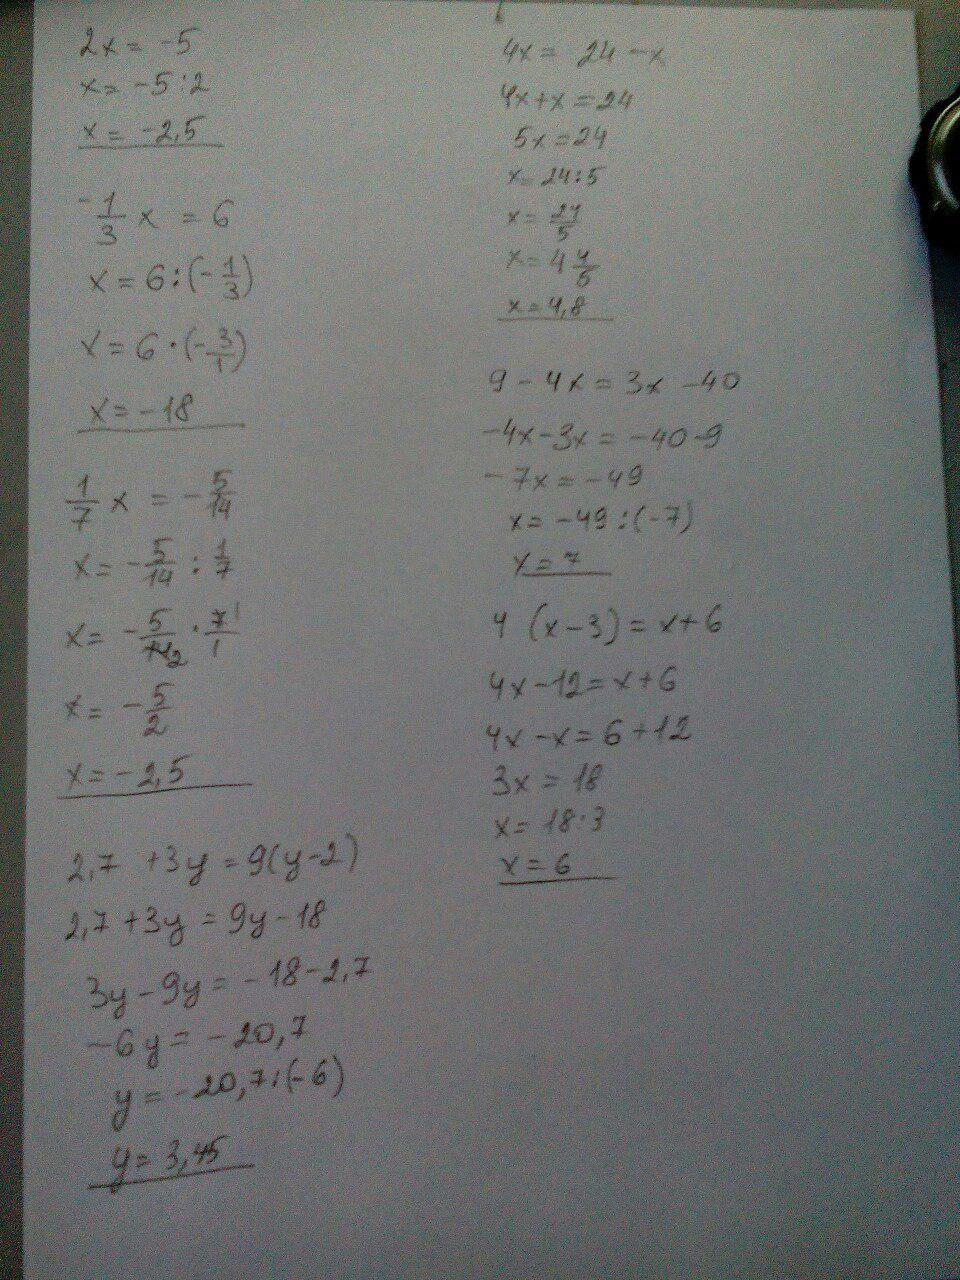 2x = -5
x = -5:2
x = -2,5
-1/3 x = 6
x = 6:(-1/3)
x = 6·(-3/1)
x = -18
1/7 x = -5/14
x = -5/14 : 1/7
x = -5/14 2 · 7 1/1
x = -5/2
x = -2,5
2,7 +3y = 9(y-2)
2,7 +3y = 9y-18
3y-9y = -18-2,7
-6y = -20,7
y = -20,7:(-6)
y = 3,45
4x = 24 -x
4x+x = 24
5x = 24
x = 24:5
x = 24/5
x = 4 4/5
x = 4,8
9 - 4x = 3x -40
-4x-3x = -40-9
-7x = -49
x = -49:(-7)
x = 7
4 (x-3) = x+6
4x-12 = x+6
4x-x = 6+12
3x = 18
x = 18:3
x = 6